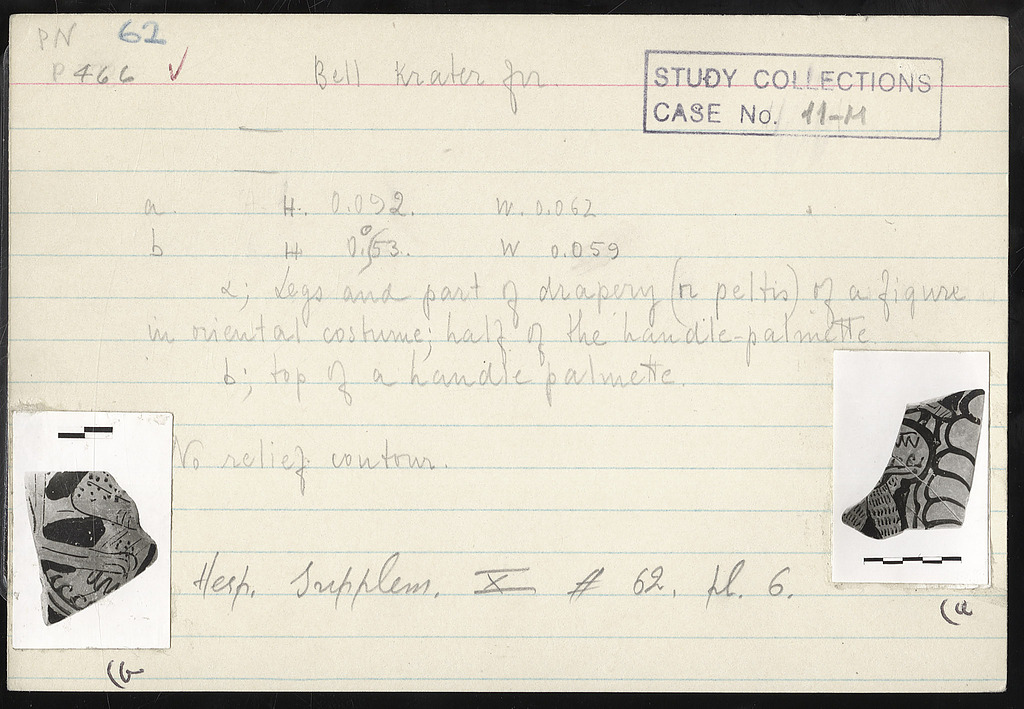 PN 62
P 466 ✓
Bell Krater fr.
STUDY COLLECTIONS
CASE No. 11-M
a H. 0.092. W. 0.062
b H 0.053. W 0.059
a; Legs and part of drapery (or peltis) of a figure
in oriental costume; half of the handle-palmette.
b; top of a handle palmette.
No relief contour.
Hesp. Supplem. X # 62. pl. 6.
(a
(b